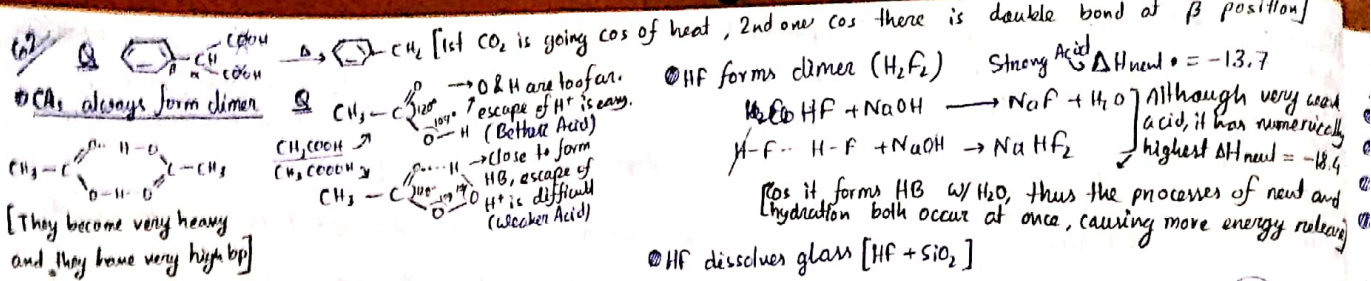 Q
β
CH
α
COOH
COOH
Δ
CH₂ [1st CO₂ is going cos of heat, 2nd one cos there is double bond at β position]
CA, always form dimer
CH₃-C
O·· H-O
O-H··O
C-CH₃
[They become very heavy
and they have very high bp]
Q CH₃-C
O
O-H
120°
109°
→ O & H are too far.
escape of H⁺ is easy.
(Better Acid)
CH₃COOH
CH₃COOOH
CH₃-C
O····H
O
O
→ close to form
HB, escape of
H⁺ is difficult
(weaker Acid)
HF forms dimer (H₂F₂)
Strong Acid ΔHneut = -13.7
HF + NaOH → NaF + H₂O
H-F·· H-F + NaOH → NaHF₂
Although very weak
acid, it has numerically
highest ΔHneut = -18.4
[Cos it forms HB w/ H₂O, thus the processes of neut and
hydration both occur at once, causing more energy
HF dissolves glass [HF + SiO₂]